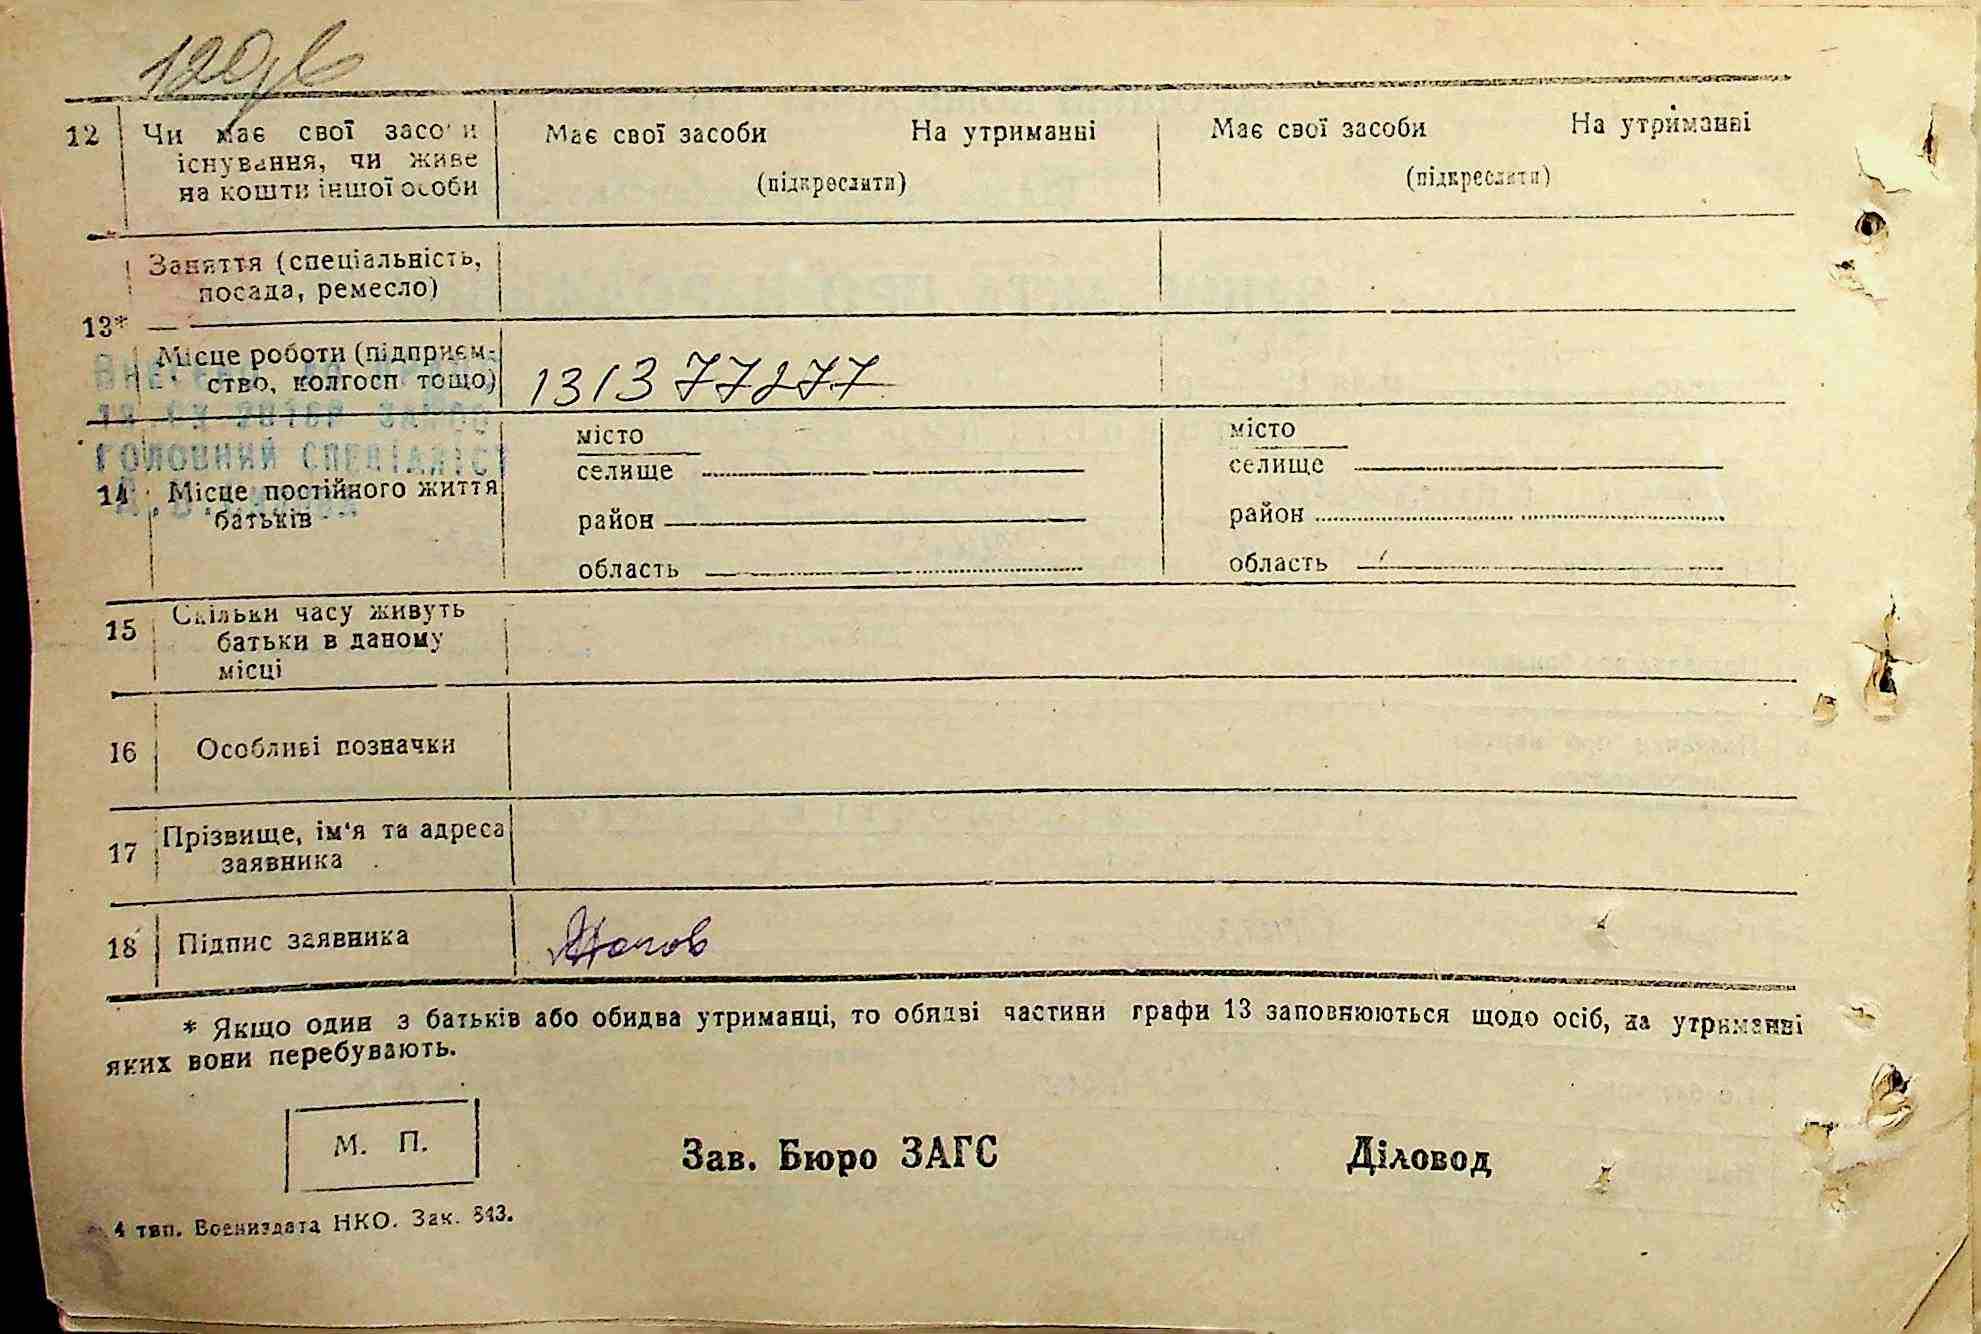 12 Чи має свої засоби Має свої засоби На утриманні Має свої засоби На утриманні
існування, чи живе (підкреслити) (підкреслити)
на кошти іншої особи
Заняття (спеціальність,
посада, ремесло)
13*
Місце роботи (підприєм-
ство, колгосп тощо) 131377277
ГОЛОВНИЙ СПЕЦІАЛІСТ
місто місто
селище селище
14 Місце постійного життя
батьків район район
область область
15 Скільки часу живуть
батьки в даному
місці
16 Особливі позначки
17 Прізвище, ім‘я та адреса
заявника
18 Підпис заявника
* Якщо один з батьків або обидва утриманці, то обидві частини графи 13 заповнюються щодо осіб, на утриманні
яких вони перебувають.
М. П. Зав. Бюро ЗАГС Діловод
4 тип. Воениздата НКО. Зак. 843.